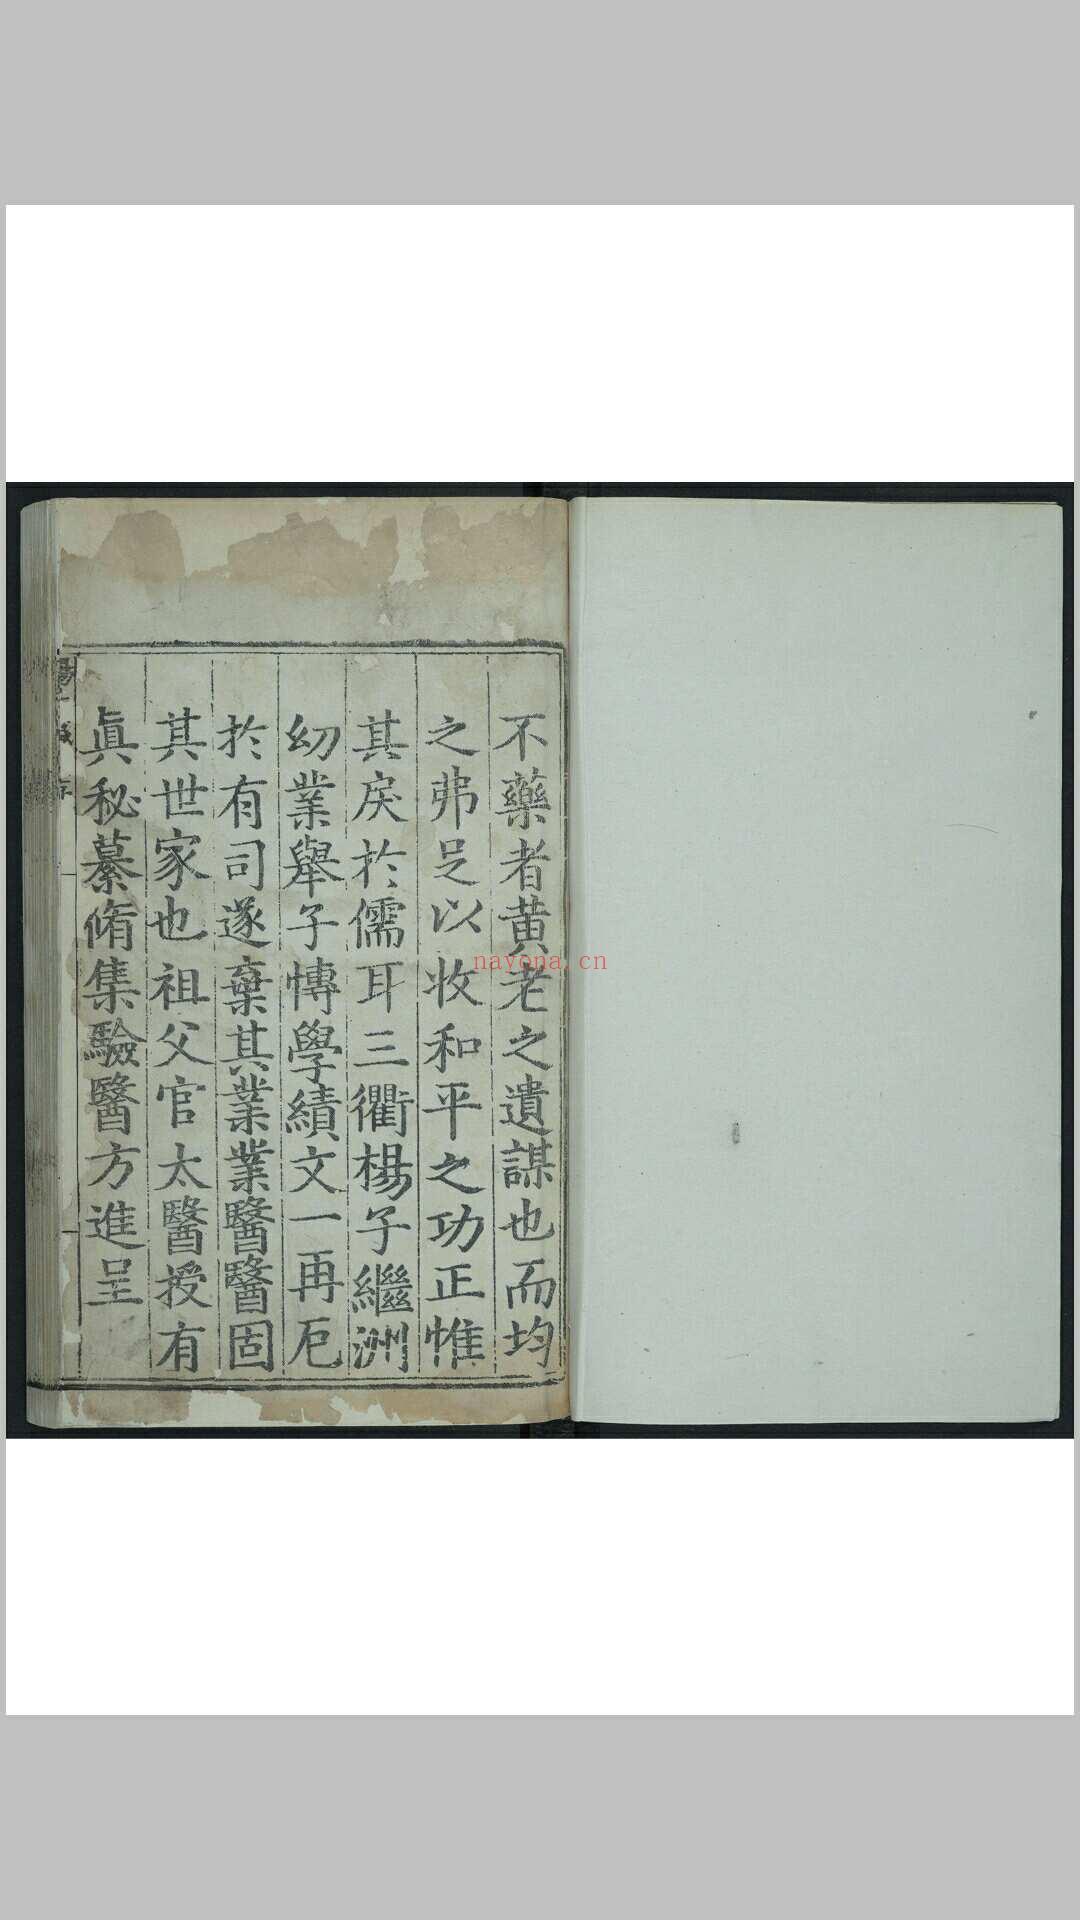 不藥者黄老之遺謀也而均
之弗足以收和平之功正惟
其戾於儒耳三衢楊子繼洲
幼業舉子慱學績文一再厄
扵有司遂棄其業業醫醫固
其世家也祖父官太醫授有
眞秘纂脩集驗醫方進呈
nayona.cn